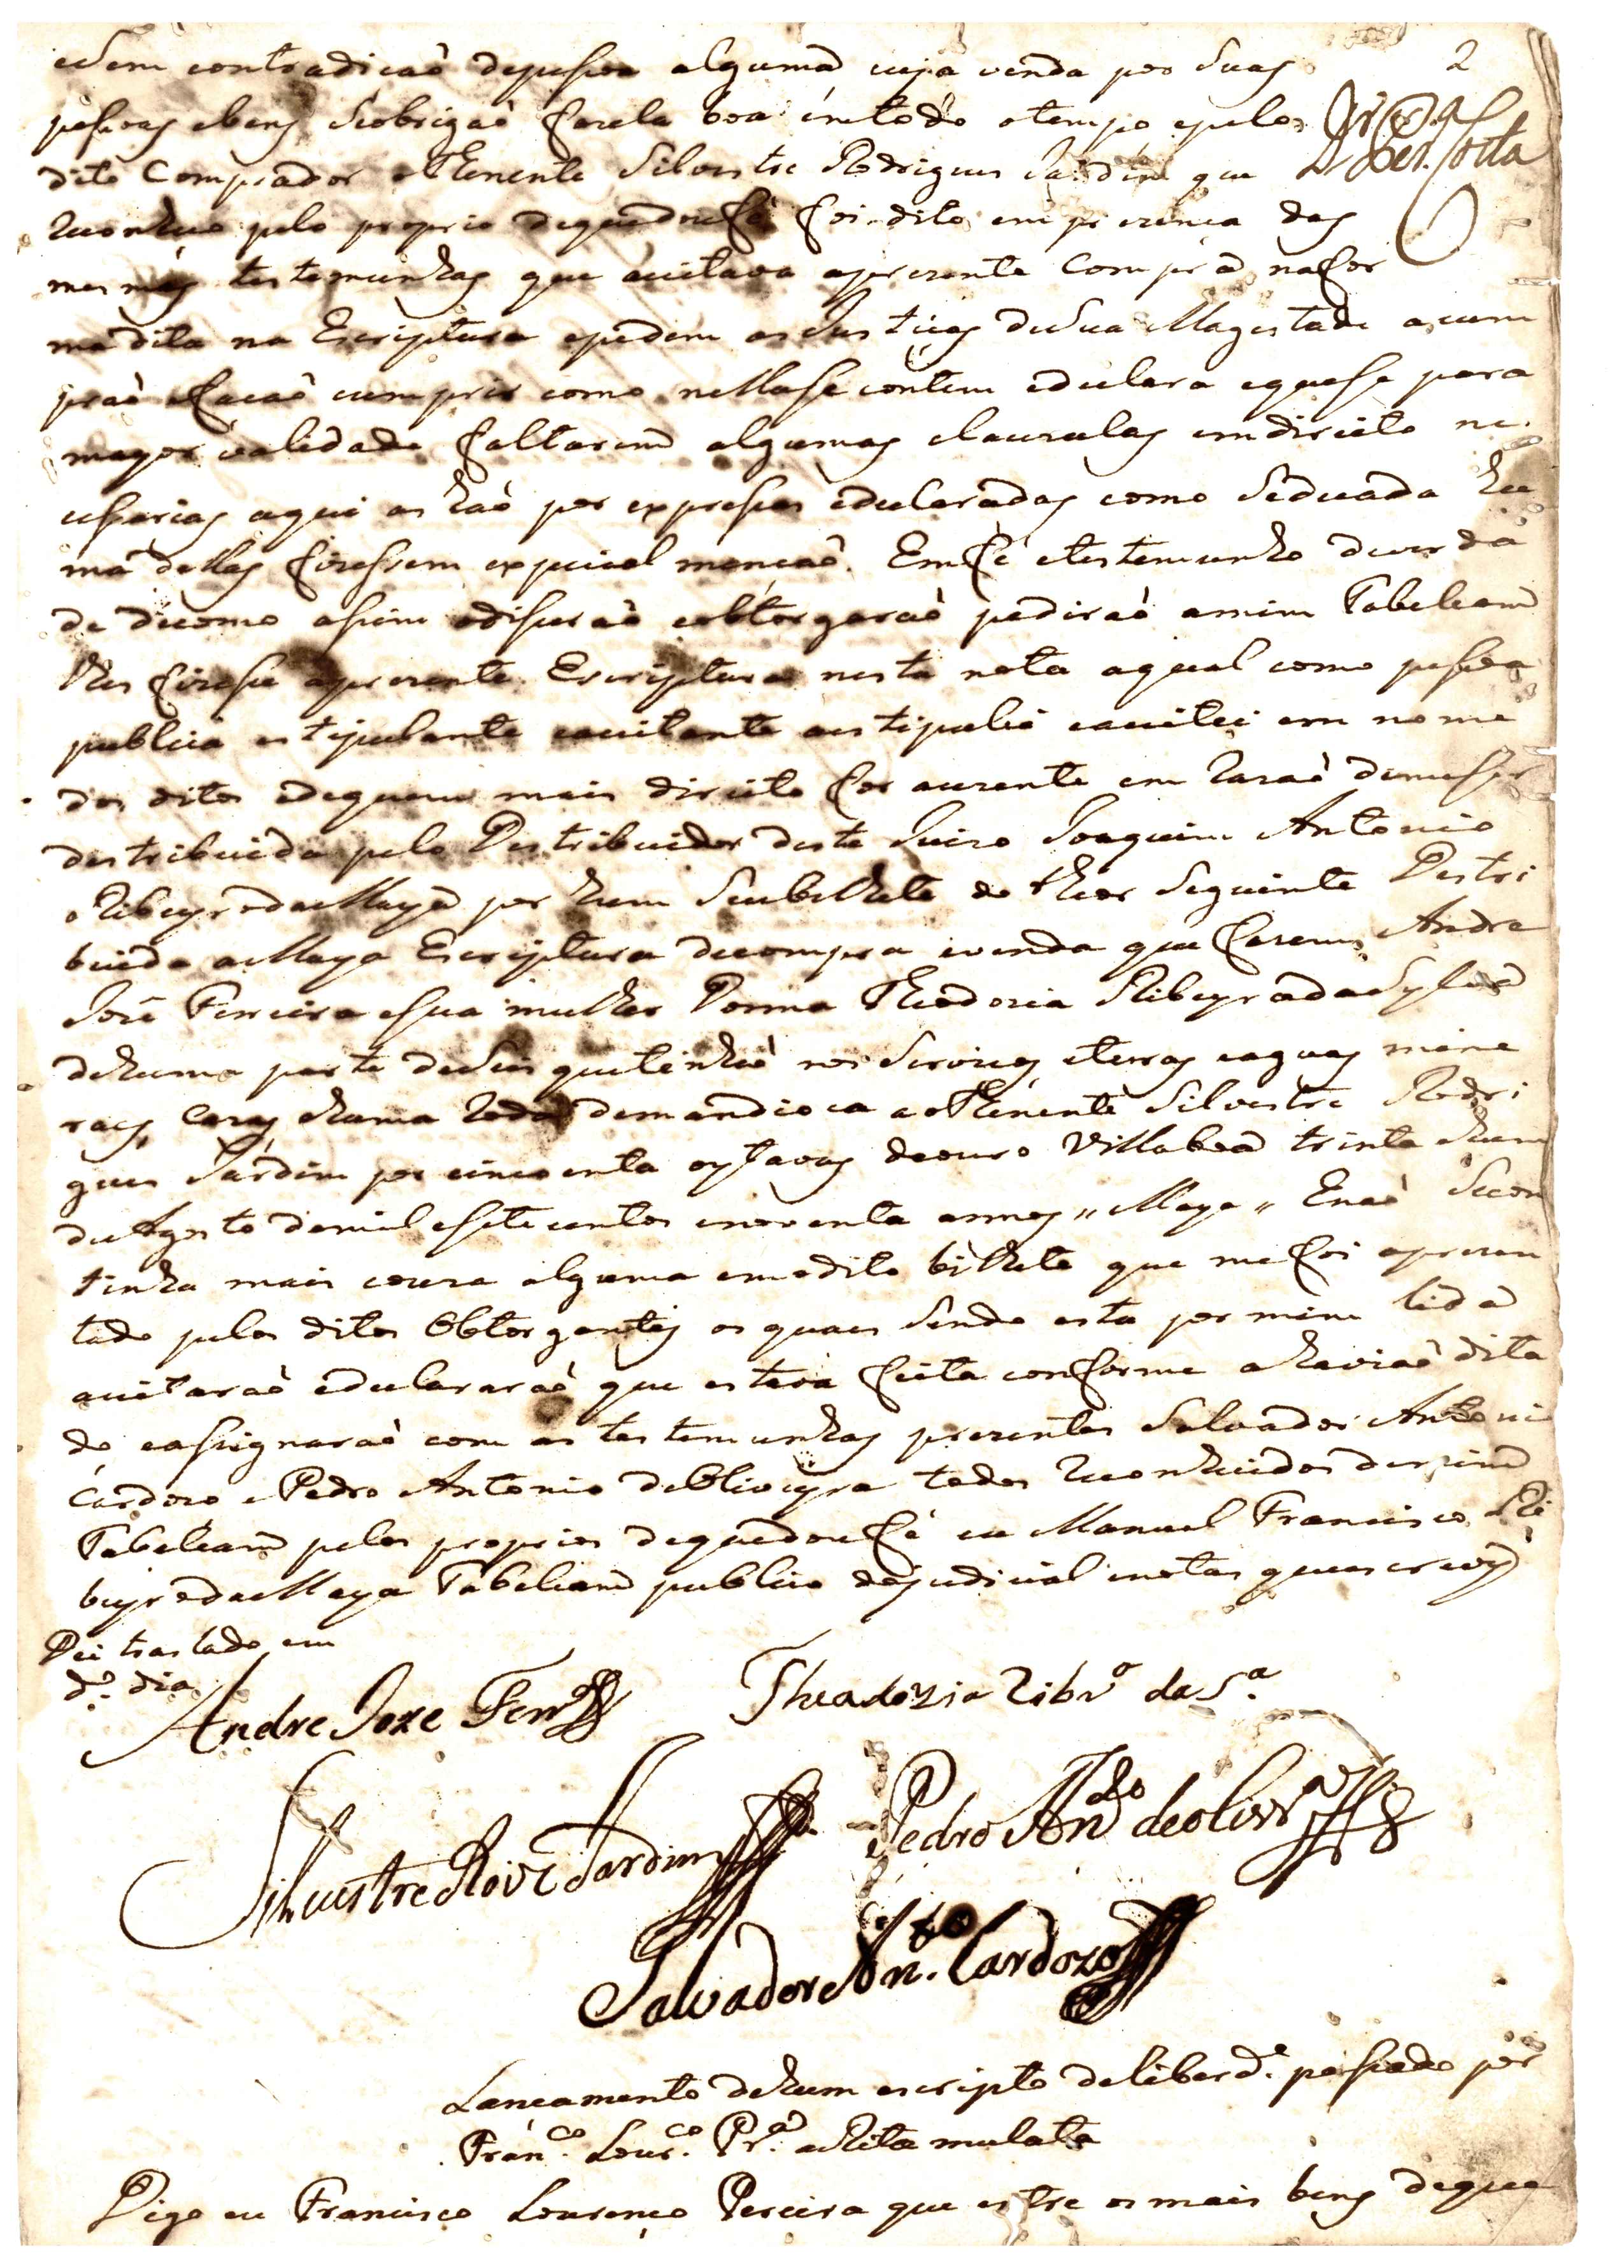 eSem contradicaõ depesoa alguma cuja venda por Suas
pesoas ebens Seobrigaõ fazela boa emtodo otempo epelo
dito Comprador oThenente Silvestre Rodrigues Jardim que
reconheco pelo proprio dequedoufé foi dito em prezenca das
mesmas testemunhas que aceitava aprezente Compra nafor
ma dita na Escriptura epedem as Justicas deSua Magestade acum
praõ efacaõ cumprir como nellase contem edeclara equese para
mayor validade faltarem algumas clauzulas emdireito ne
cesarias aqui as haõ por expresas edeclaradas como Sedecada hu
ma dellas fizessem expecial mencaõ. Emfé etestemunho deverda
de decomo asim odiseraõ eobtorgaraõ pediraõ amim Tabeleam
lhes fizese aprezente Escriptura nesta nota aqual como pesoa
publica estipulante eaceitante aestipulei eaceitei em nome
dos ditos edequem mais direito for auzente em razaõ demeser
destribuida pelo Destribuidor deste Juizo Joaquim Antonio
Ribeyro daMaya por hum Seubilhete do theor Seguinte Destri
buida aMaya Escriptura decompra evenda que fazem Andre
José Ferreira eSua mulher Donna Theodozia Ribeyra daSylva
dehuma parte deSeis quetinhaõ nos Servicos eterras eaguas mine
raes, Cazas ehuma roda demandioca aoThenente Silvestre Rodri
gues Jardim por cincoenta oytavas deouro Villaboa trinta ehum
deAgosto demil eSetecentos enoventa annos " Maya " Enaõ Secon
tinha mais couza alguma emodito bilhete que mefoi aprezen
tado pelos ditos Obtorgantes os quaes Sendo esta por mim lida
aceitaraõ edeclararaõ que estava feita conforme ahaviaõ dita
do easignaraõ com as testemunhas prezentes Salvador Antoni
Cardozo ePedro Antonio deOliveyra todos reconhecidos demim
Tabeleam pelos proprios dequedoufé eu Manuel Francisco Ri
beyro daMaya Tabeliam publico dojudicial enotas queescrevy
Dei traslado em
dº. dia
Andre Joze Ferrª
Theadozia Ribrº da Sª.
Silvestre Roiz Jardim
Pedro Antº deolivrª
Salvador Antº. Cardozo
Lancamento dehum escripto deliberdᵉ. pasado por
Francº. Lourcº. Prª. aRita mulata
Digo eu Francisco Lourenco Pereira que entre os mais bens deque
2
Costa